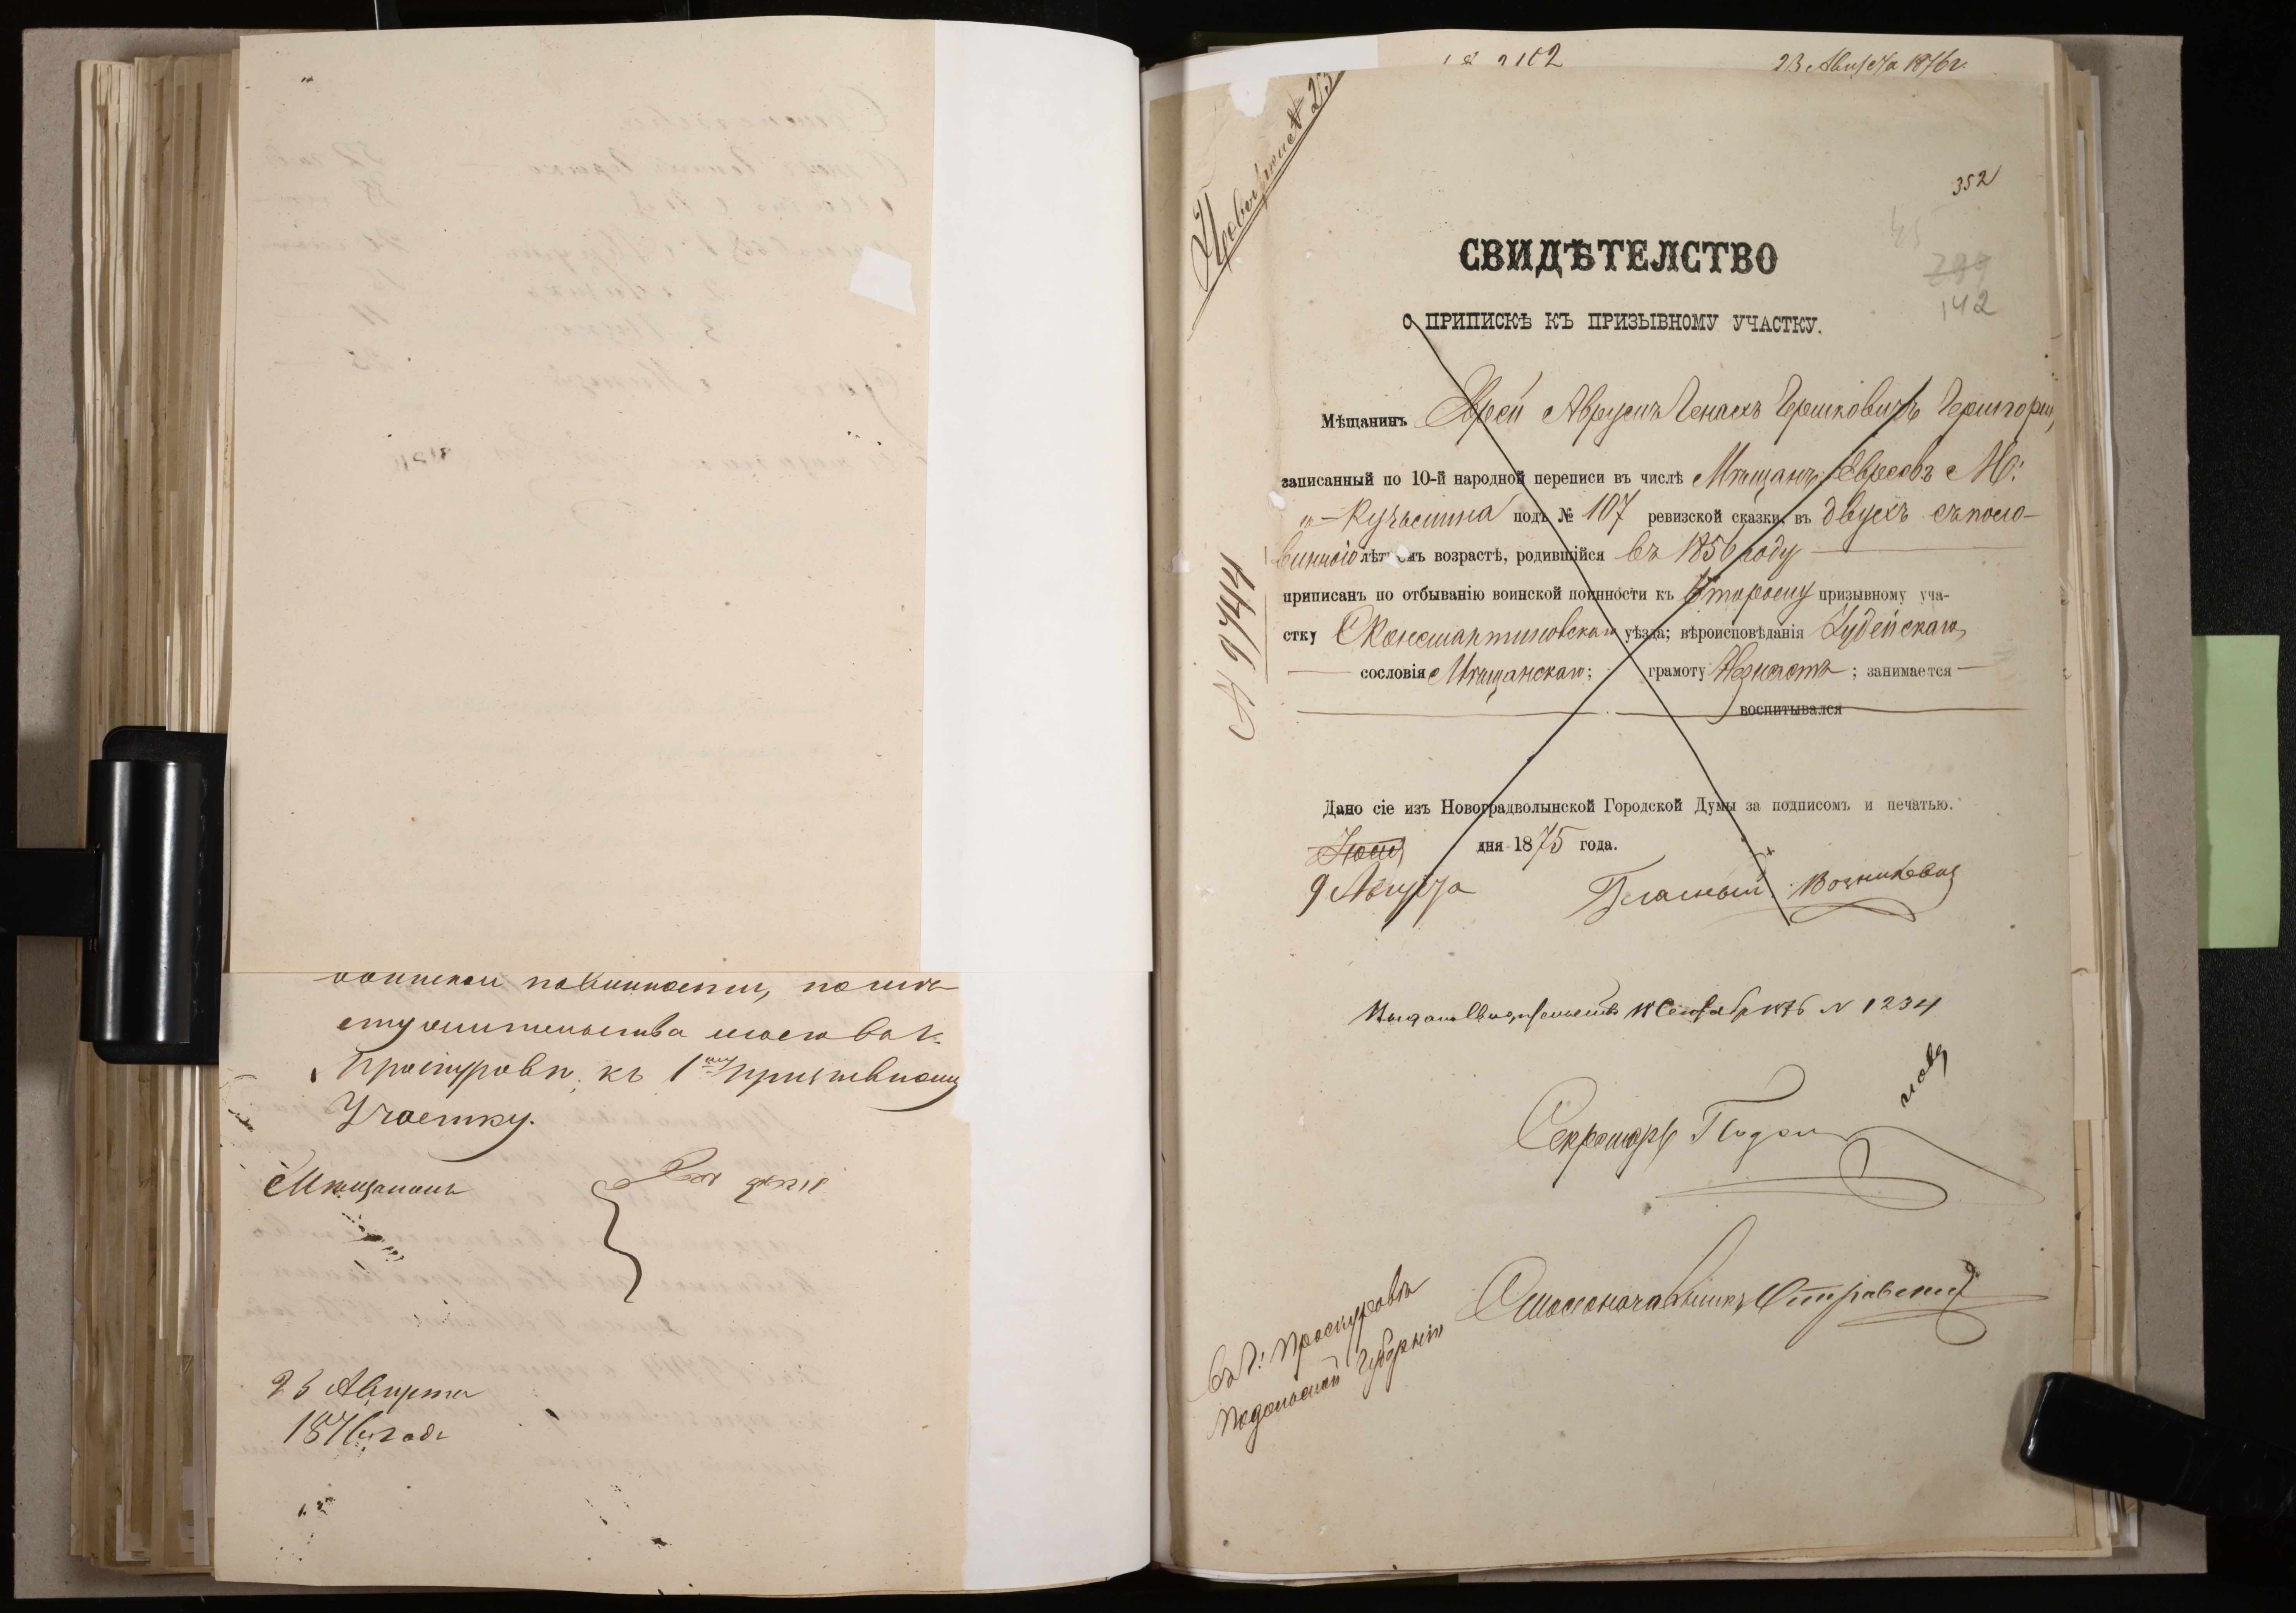 воинской повинности, по мѣ-
сту жительства моего въ г.
Проскуровѣ, къ 1му призывному
Участку.
Мѣщанинъ
23 Августа
1876 года
2102
23 Августа 1876 г.
352
142
СВИДѢТЕЛСТВО
О ПРИПИСКѢ КЪ ПРИЗЫВНОМУ УЧАСТКУ.
Мѣщанинъ Еврей Аврумъ Генахъ Гершковичъ
записанный по 10-й народной переписи въ числѣ Мѣщанъ Евреовъ М.
Кузьмина подъ № 107 ревизской сказки, въ двухъ съ поло-
виннаго лѣтнемъ возрастѣ, родившійся въ 1856 году
приписанъ по отбыванію воинской повинности къ Второму призывному уча-
стку С Константиновскаго уѣзда; вѣроисповѣданія Іудейскаго,
сословія Мѣщанскаго; грамоту Незнаетъ; занимается
воспитывался
№ 9744
Дано сіе изъ Новоградволынской Городской Думы за подписомъ и печатью.
Іюня дня 1875 года.
9 Августа Гласный
Выдано Свидѣтельство 18 Сентября 1876 № 1234
Секретарь
Столоначальникъ
Въ г. Проскуровъ
Подольской Губерніи